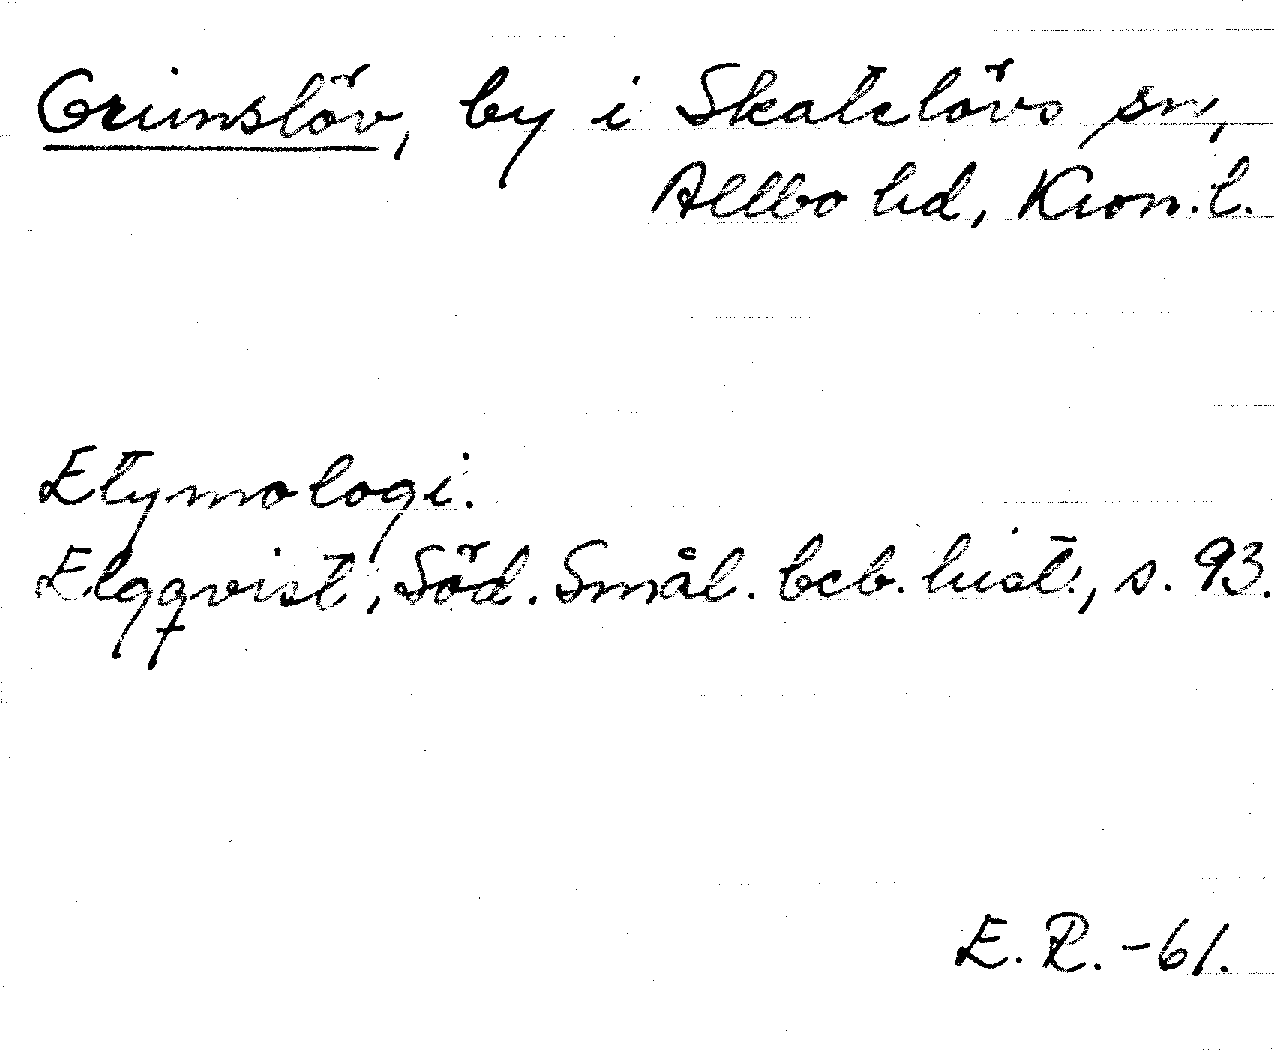 Grimslöv, by i Skatelövs sn,
Allbo hd, Kron.l.
Etymologi.
Elgqvist, Söd. Smål. beb. hist., s. 93.
E. R. -61.